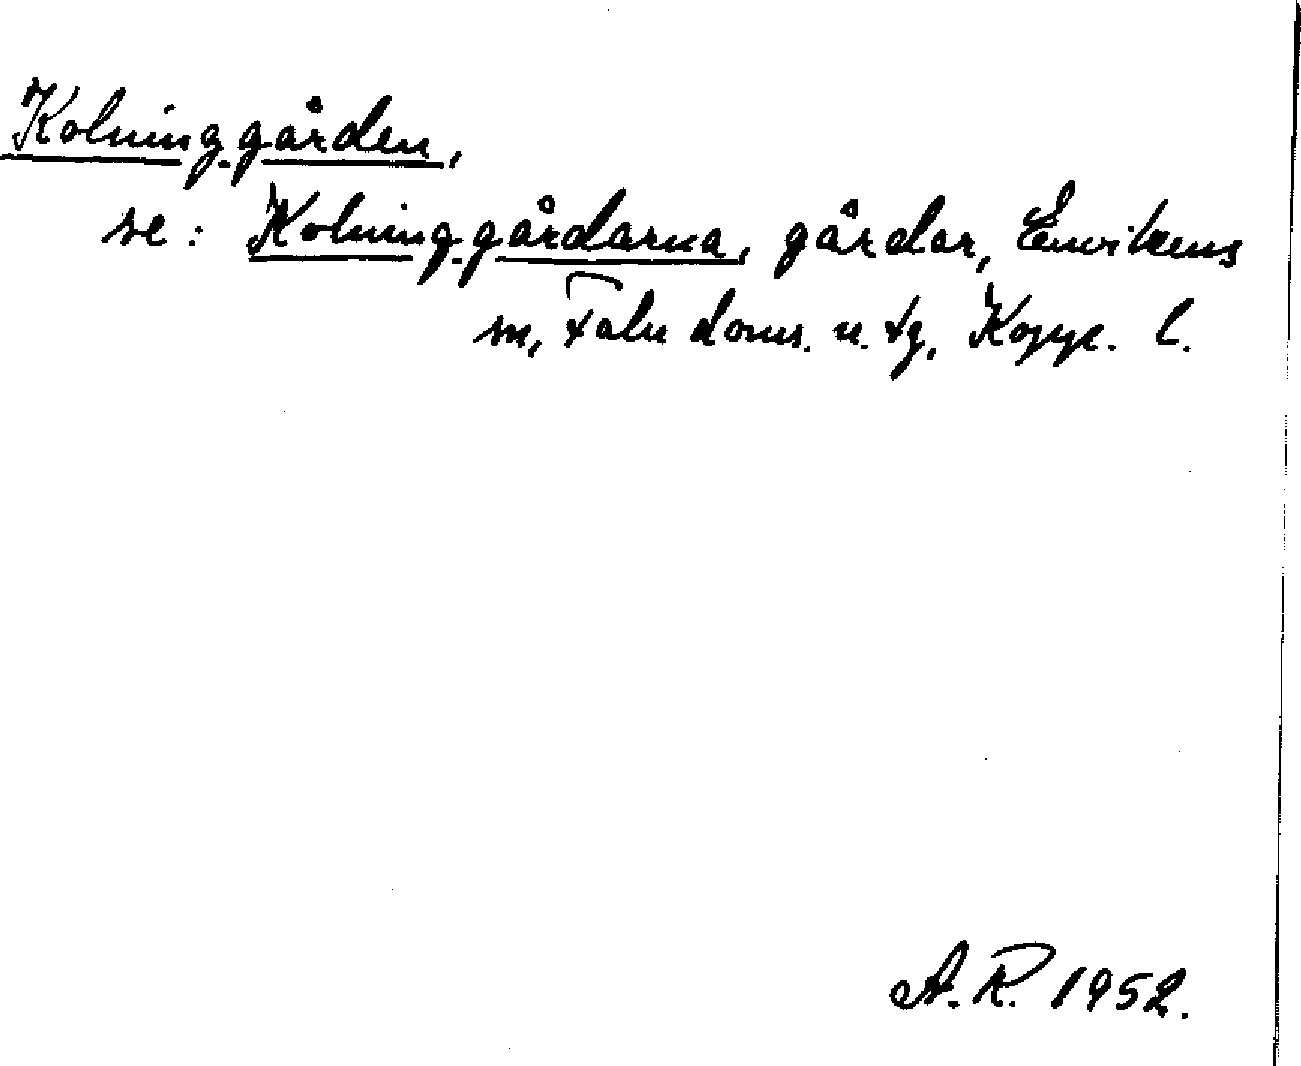 Kolninggården,
se: Kolninggårdarna, gårdar, Envikens
sn, Falu doms. n. tg, Kopp. l.
A. R. 1952.